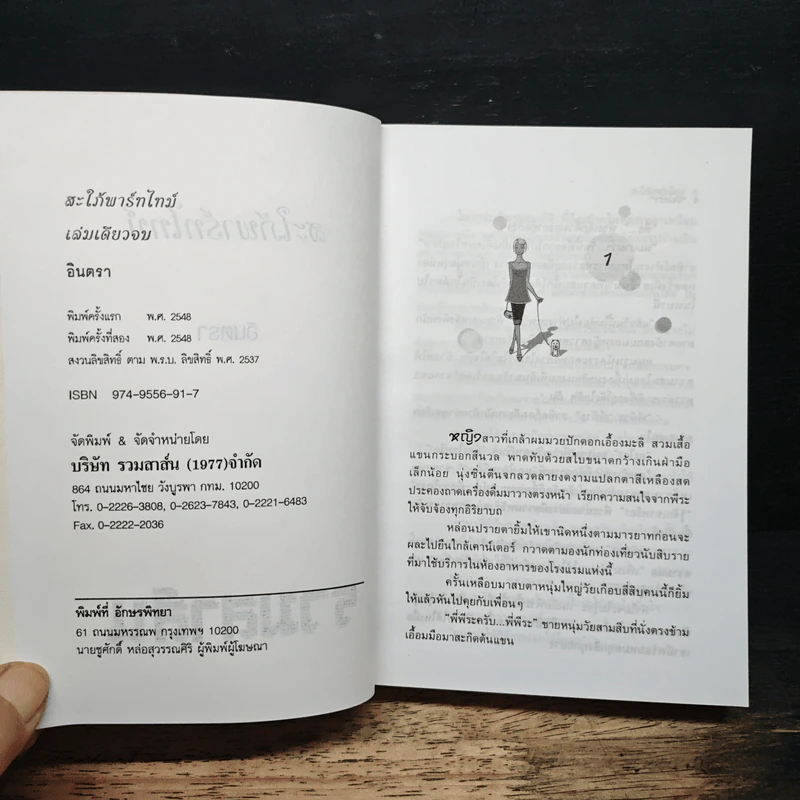 สะใภ้พาร์ทไทม์
เล่มเดียวจบ
อินตรา
พิมพ์ครั้งแรก พ.ศ. 2548
พิมพ์ครั้งที่สอง พ.ศ. 2548
สงวนลิขสิทธิ์ ตาม พ.ร.บ. ลิขสิทธิ์ พ.ศ. 2537
ISBN 974-9556-91-7
จัดพิมพ์ & จัดจำหน่ายโดย
บริษัท รวมสาส์น (1977)จำกัด
864 ถนนมหาไชย วังบูรพา กทม. 10200
โทร. 0-2226-3808, 0-2623-7843, 0-2221-6483
Fax. 0-2222-2036
พิมพ์ที่ อักษรพิทยา
61 ถนนมหรรณพ กรุงเทพฯ 10200
นายชูศักดิ์ หล่อสุวรรณศิริ ผู้พิมพ์ผู้โฆษณา
1
หญิงสาวที่เกล้าผมมวยปักดอกเอื้องมะลิ สวมเสื้อ
แขนกระบอกสีนวล พาดทับด้วยสไบขนาดกว้างเกินฝ่ามือ
เล็กน้อย นุ่งซิ่นตีนจกลวดลายงดงามแปลกตาสีเหลืองสด
ประคองถาดเครื่องดื่มมาวางตรงหน้า เรียกความสนใจจากพีระ
ให้จับจ้องทุกอิริยาบถ
หล่อนปรายตายิ้มให้เขานิดหนึ่งตามมารยาทก่อนจะ
ผละไปยืนใกล้เคาน์เตอร์ กวาดตามองนักท่องเที่ยวนับสิบราย
ที่มาใช้บริการในห้องอาหารของโรงแรมแห่งนี้
ครั้นเหลือบมาสบตาหนุ่มใหญ่วัยเกือบสี่สิบคนนี้ก็ยิ้ม
ให้แล้วหันไปคุยกับเพื่อนๆ
“พี่พีระครับ...พี่พีระ” ชายหนุ่มวัยสามสิบที่นั่งตรงข้าม
เอื้อมมือมาสะกิดต้นแขน